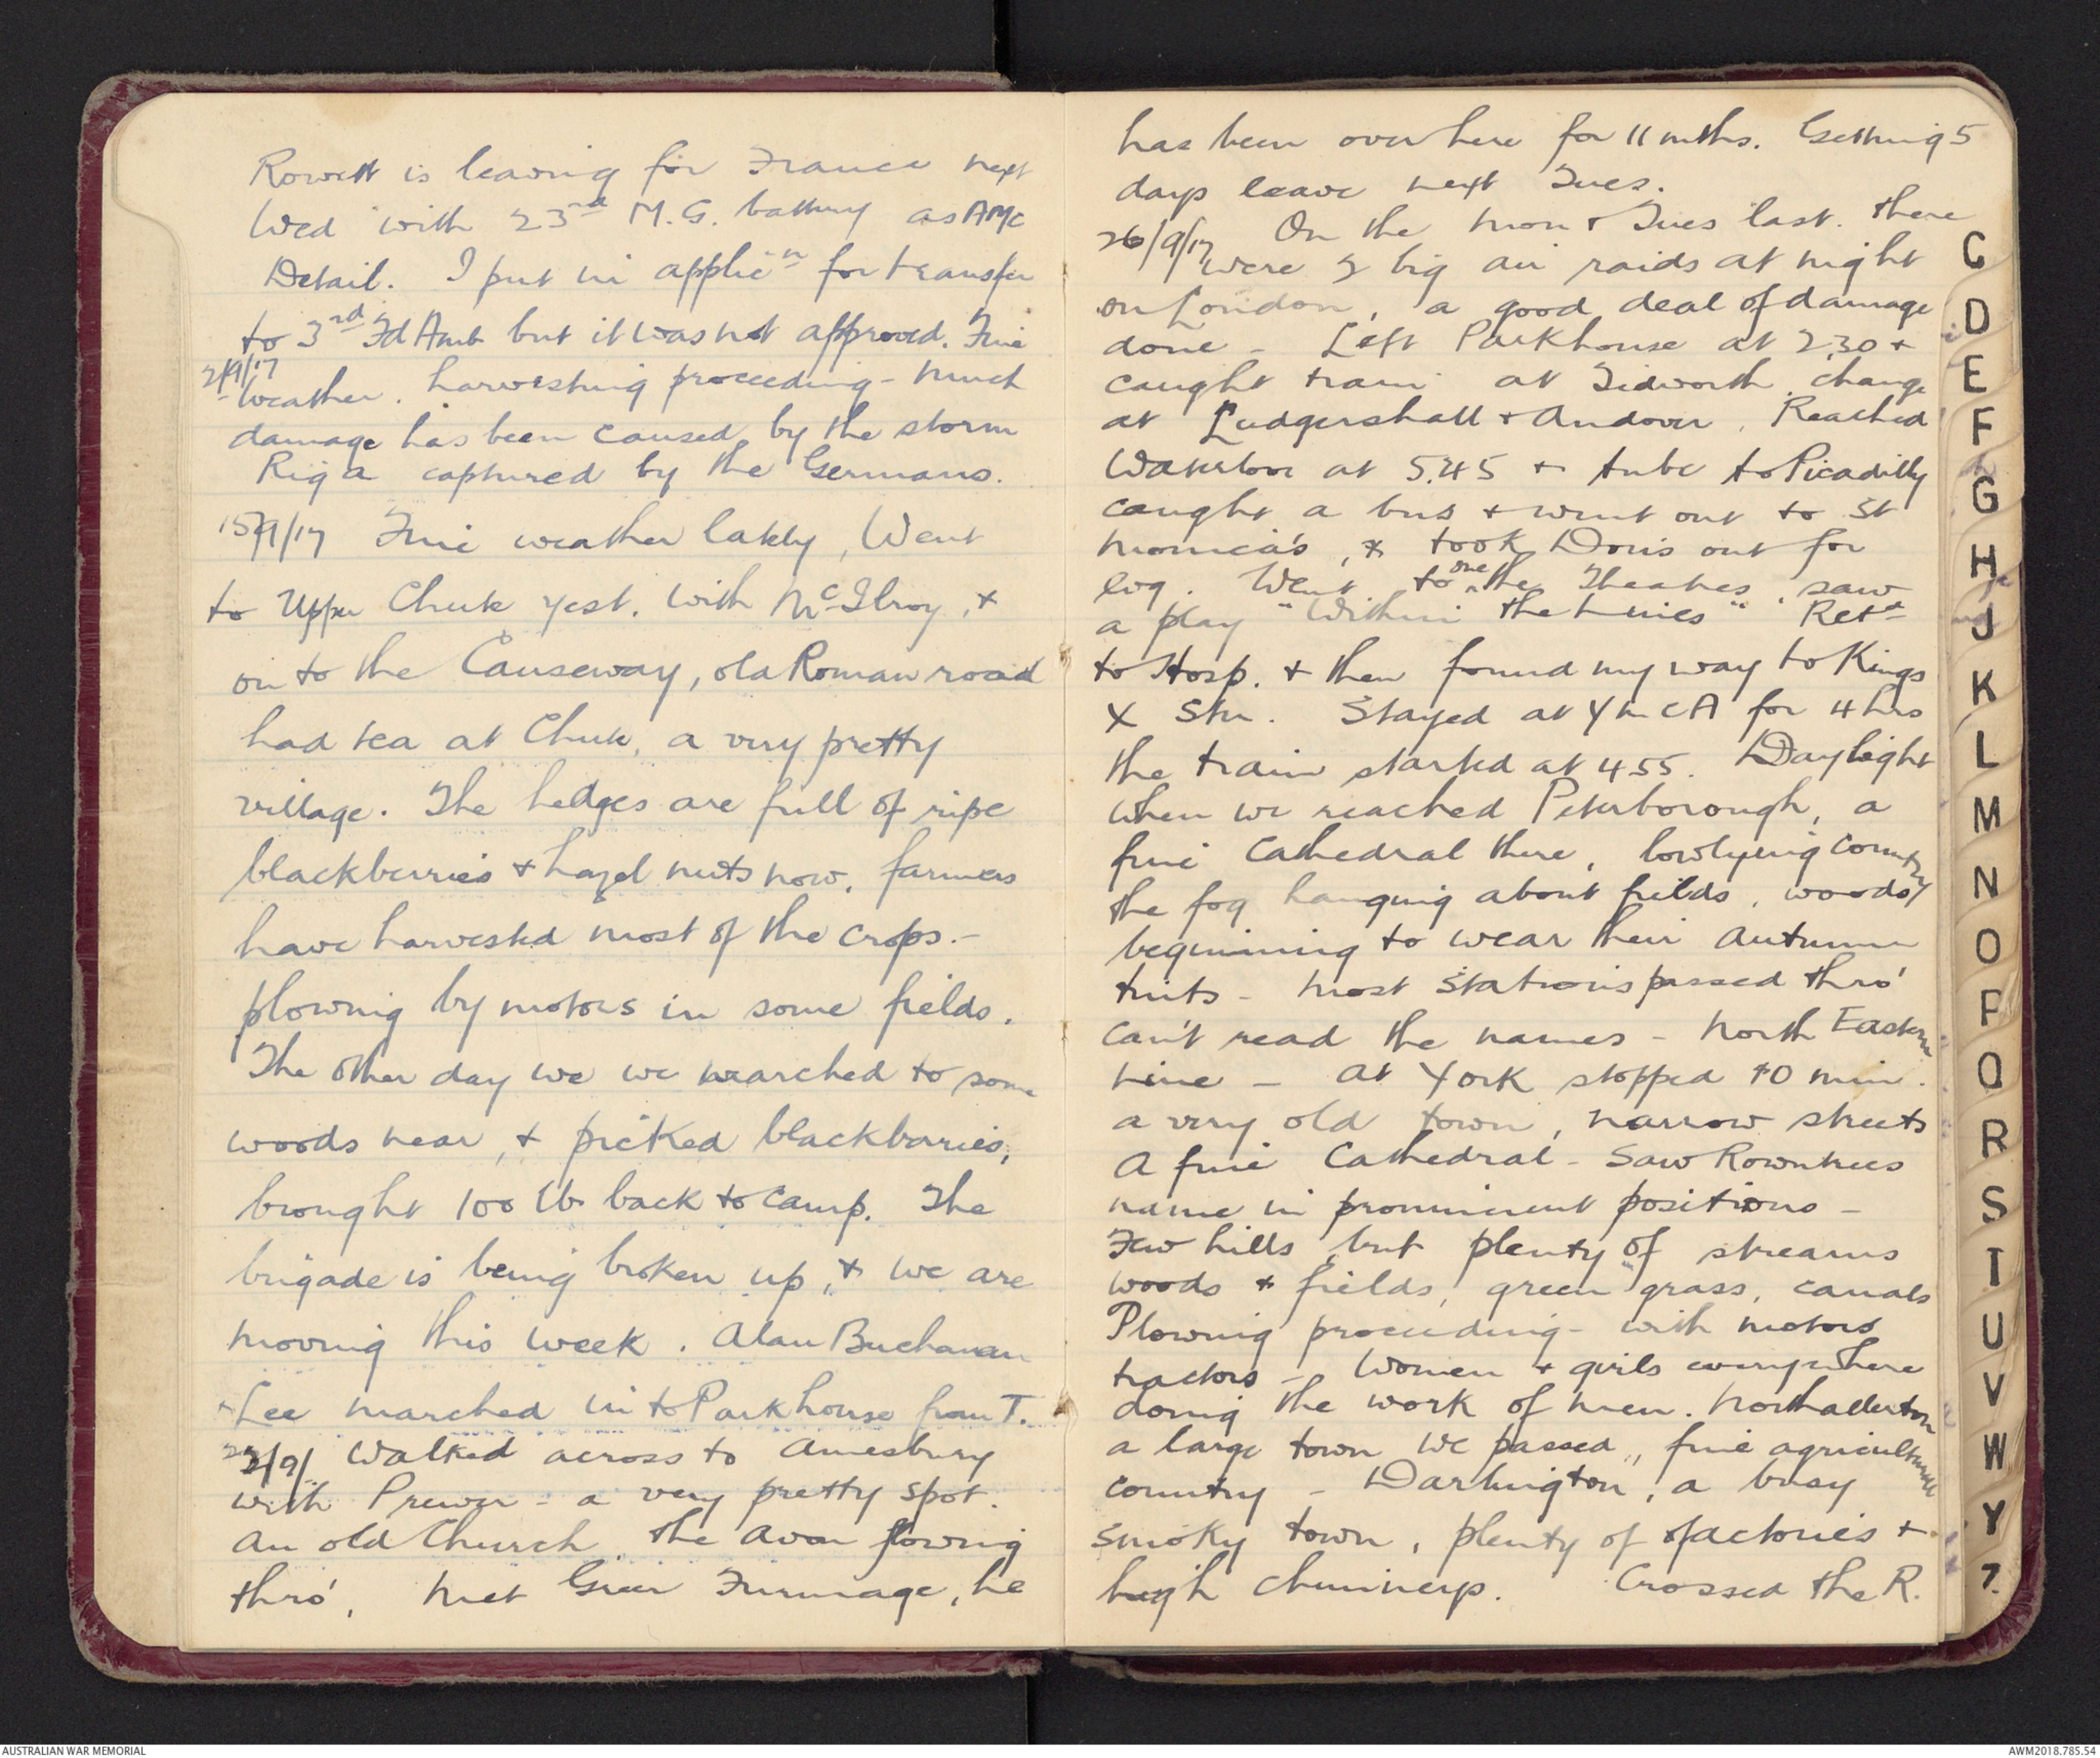 Rowett is leaving for France next
Wed with 23rd M.G. battery as AMC
Detail. I put in applicn for transfer
to 3rd Fd Amb but it was not approved. Fine
2/9/17
weather. harvesting proceeding - much
damage has been caused by the storm
Riga captured by the Germans.
15/9/17 Fine weather lately, Went
to Upper Chute yest. with McIlroy, +
on to the Causeway, old Roman road
had tea at Chute, a very pretty
village. The hedges are full of ripe
blackberries + hazel nuts now, farmers
have harvested most of the crops. -
plowing by motors in some fields.
The other day we we marched to some
woods near, + picked blackbaries,
brought 100 lb back to camp. The
brigade is being broken up, + we are
moving this week. Alan Buchanan
+ Lee marched in to Parkhouse from T.
22/9/ Walked across to Amesbury
with Prewer - a very pretty spot.
An old Church, the Avon flowing
thro', met Greer Furmage, he
has been over here for 11 mths. Getting 5
days leave next Tues.
26/9/17 On the Mon + Tues last. there
were 2 big air raids at night
on London, a good deal of damage
done - Left Parkhouse at 2.30 +
caught train at Tidworth, change
at Ludgershall + Andover. Reached
Waterloo at 5.45 + tube to Picadilly
caught a bus + went out to St
Monica's, + took Doris out for
evg. Went to one the Theatres, saw
a play "Within the Lines" Retd
to Hosp. + then found my way to Kings
X Stn. Stayed at YMCA for 4 hrs
the train started at 4.55. Daylight
when we reached Peterborough, a
fine Cathedral there, lowlying country
the fog hanging about fields, woods
beginning to wear their Autumn
tints - most stations passed thro'
can't read the names - North Eastern
Line - At York stopped 10 min.
a very old town, narrow streets
A fine Cathedral - Saw Rowntrees
name in prominent positions -
Few hills but plenty of streams
woods + fields, green grass, canals
Plowing proceeding - with motors
tractors - Women + girls everywhere
doing the work of men. Northallerton
a large town we passed, fine agricultural
country - Darlington, a busy
smoky town, plenty of factories +
high chimneys. Crossed the R.
C
D
E
F
G
H
J
K
L
M
N
O
P
Q
R
S
T
U
V
W
Y
Z
AUSTRALIAN WAR MEMORIAL
AWM2018.785.54